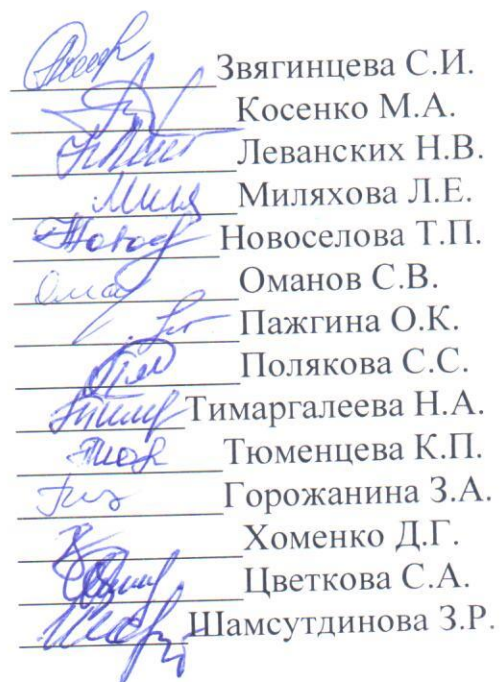 Звягинцева С.И.
Косенко М.А.
Леванских Н.В.
Миляхова Л.Е.
Новоселова Т.П.
Оманов С.В.
Пажгина О.К.
Полякова С.С.
Тимаргалеева Н.А.
Тюменцева К.П.
Горожанина З.А.
Хоменко Д.Г.
Цветкова С.А.
Шамсутдинова З.Р.